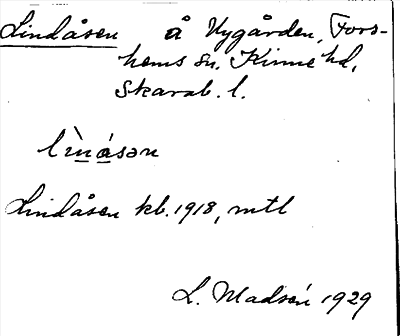 Lindåsen å Nygården, Fors-
hems sn. Kinne hd,
Skarab. l.
lìnåsən
Lindåsen kb. 1918, mtl
L. Madsén 1929